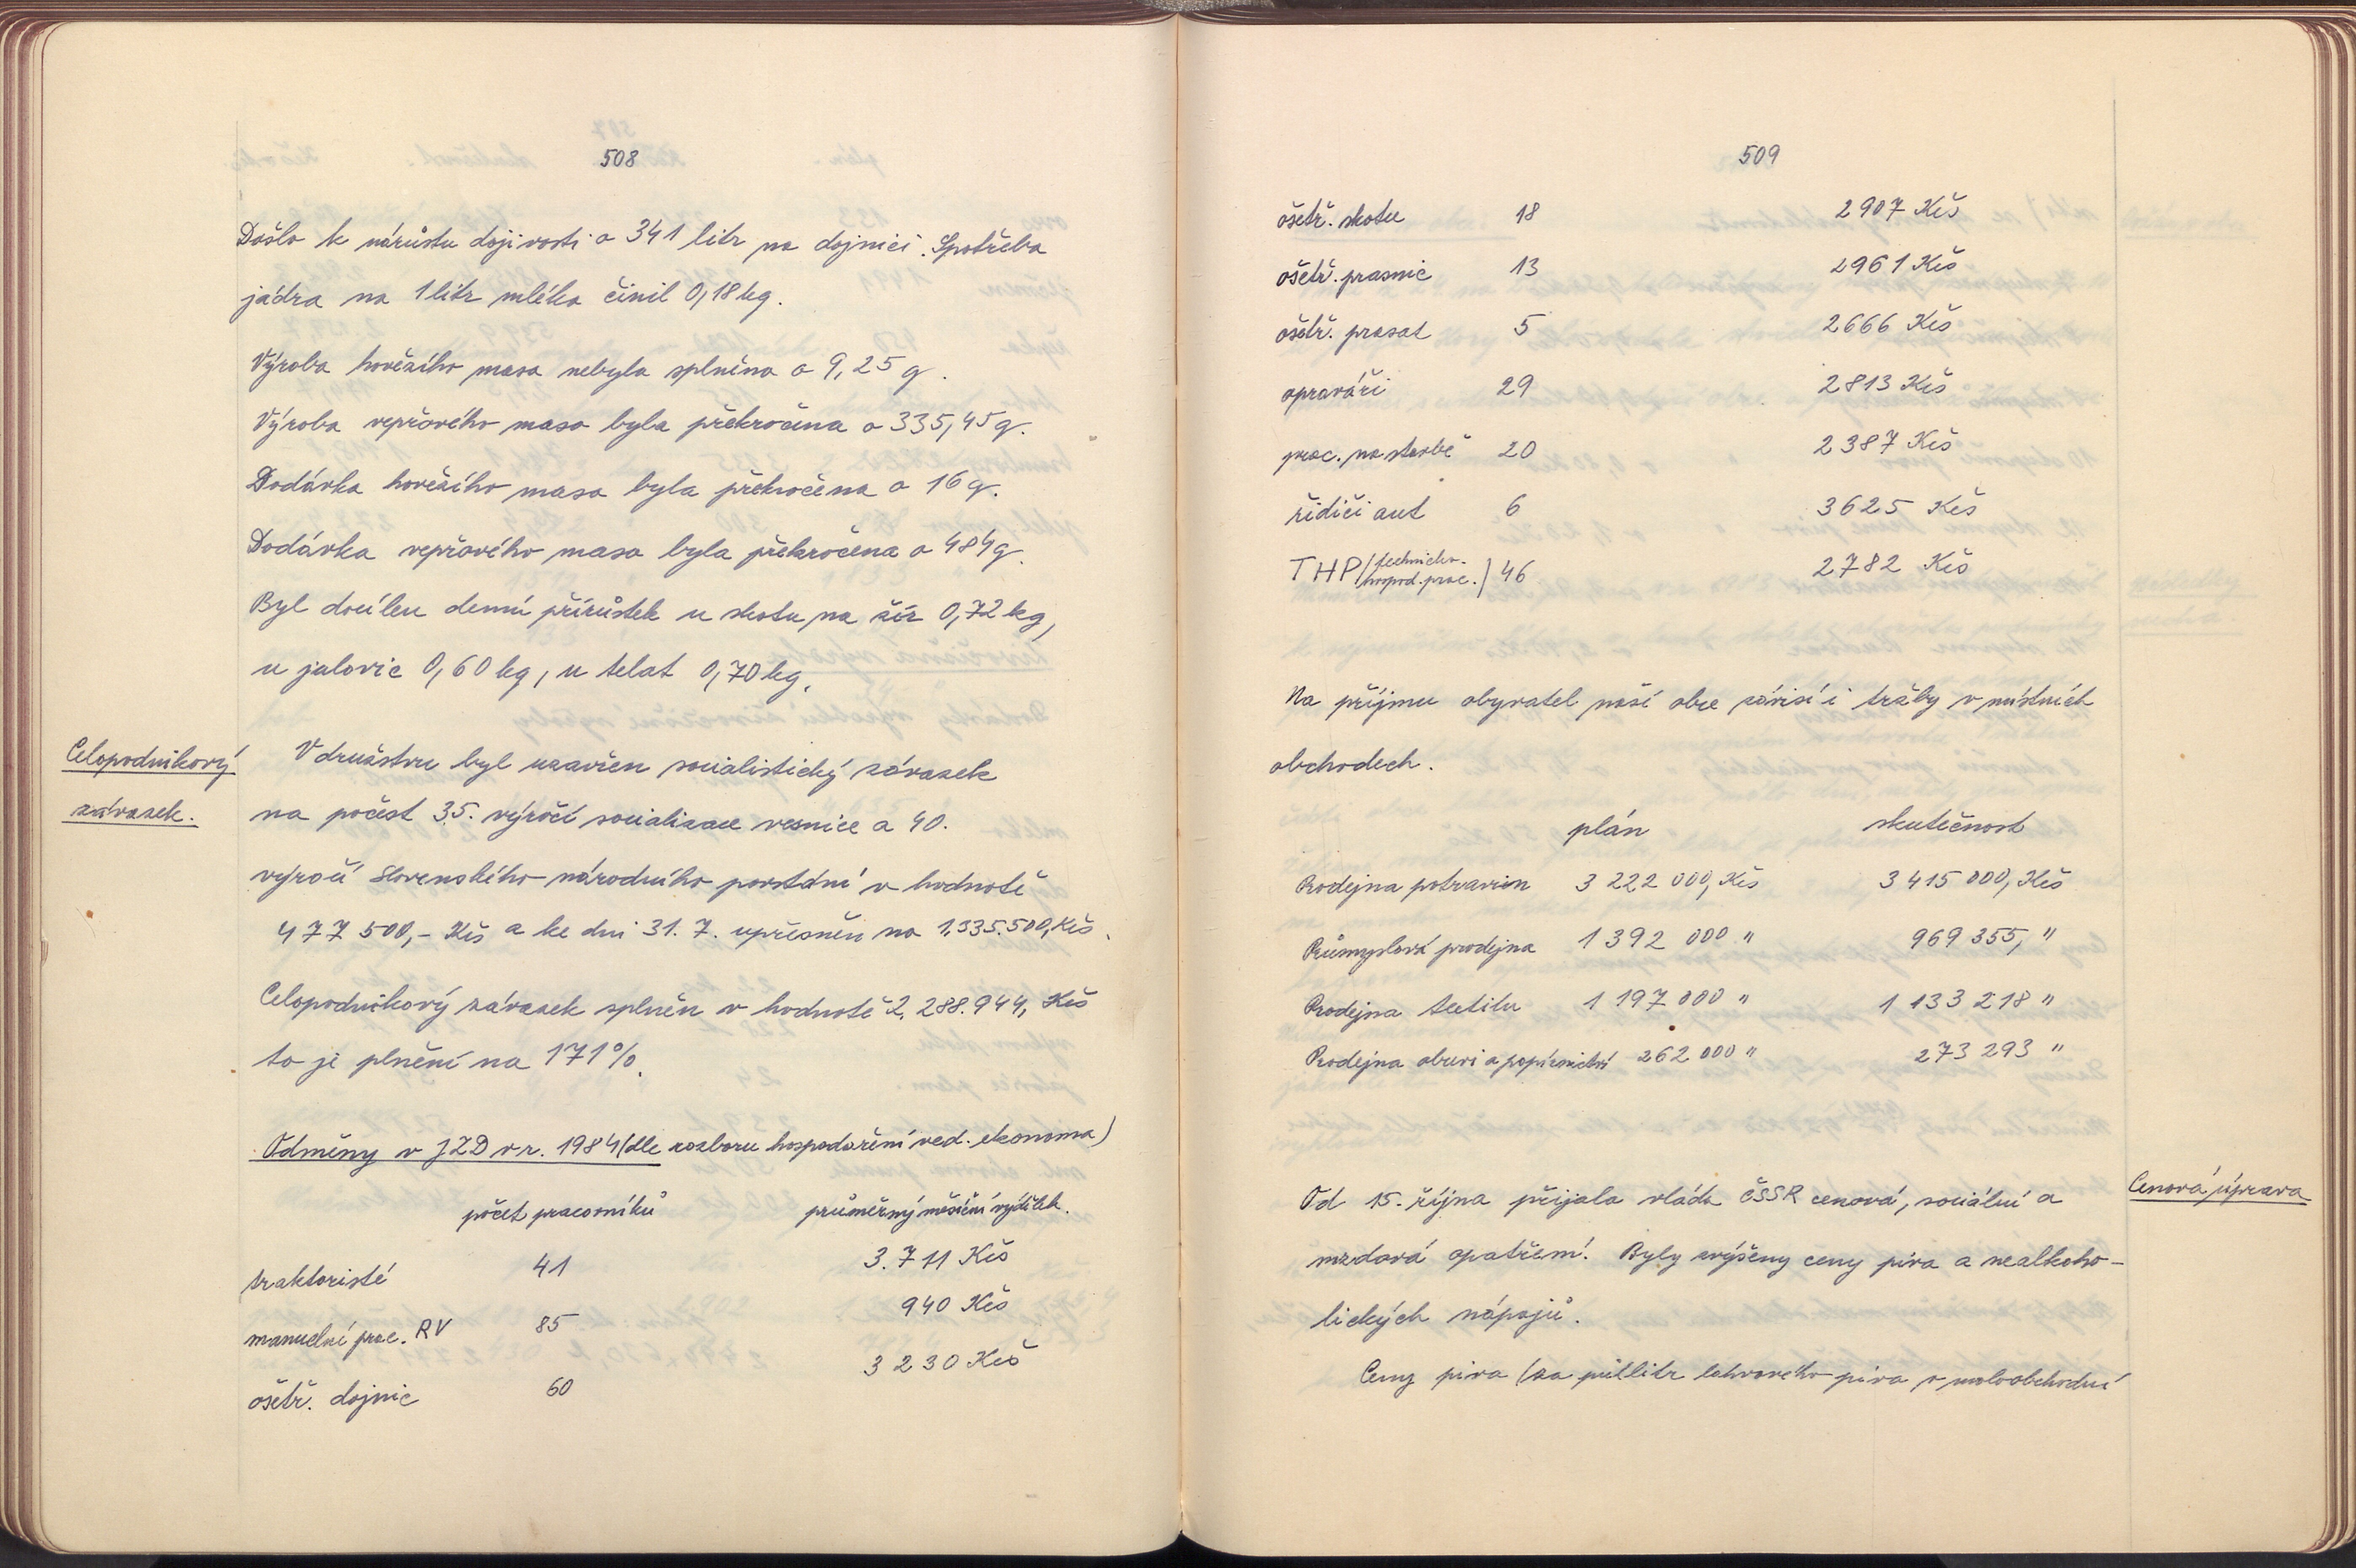 508
Došlo k nárůstu dojivosti o 341 litr na dojnici. Spotřeba
jádra na 1 litr mléka činil 0,18 kg.
Výroba hovězího masa nebyla splněna o 9,25 q.
Výroba vepřového masa byla překročena o 335,45 q.
Dodávka hovězího masa byla překročena o 16 q.
Dodávka vepřového masa byla překročena o 484 q.
Byl docílen denní přírůstek u skotu na žír 0,72 kg,
u jalovic 0,60 kg, u telat 0,70 kg.
Celopodnikový
závazek.
V družstvu byl uzavřen socialistický závazek
na počest 35. výročí socializace vesnice a 40.
výročí Slovenského národního povstání v hodnotě
477 500,- Kčs a ke dni 31. 7. upřesněn na 1.335.500, Kčs.
Celopodnikový závazek splněn v hodnotě 2. 288. 944, Kčs
to je plnění na 171 %.
Odměny v JZD v r. 1984 (dle rozboru hospodaření ved. ekonoma)
počet pracovníků průměrný měsíční výdělek.
traktoristé 41 3. 711 Kčs
manuelní prac. RV 85 940 Kčs
ošetř. dojnic 60 3 230 Kčs
509
ošetř. skotu 18 2907 Kčs
ošetř. prasnic 13 2961 Kčs
ošetř. prasat 5 2666 Kčs
opraváři 29 2813 Kčs
prac. na stavbě 20 2387 Kčs
řidiči aut 6 3625 Kčs
THP (technicko-
hospod. prac.) 46 2782 Kčs
Na příjmu obyvatel naší obce závisí i tržby v místních
obchodech.
plán skutečnost
Prodejna potravin 3 222 000, Kčs 3 415 000, Kčs
Průmyslová prodejna 1 392 000 " 969 355, "
Prodejna textilu 1 197 000 " 1 133 218 "
Prodejna obuvi a papírnictví 262 000 " 273 293 "
Cenová úprava
Od 15. října přijala vláda ČSSR cenová, sociální a
mzdová opatření. Byly zvýšeny ceny piva a nealkoho-
lických nápojů.
Ceny piva (za půllitr lahvového piva v maloobchodní